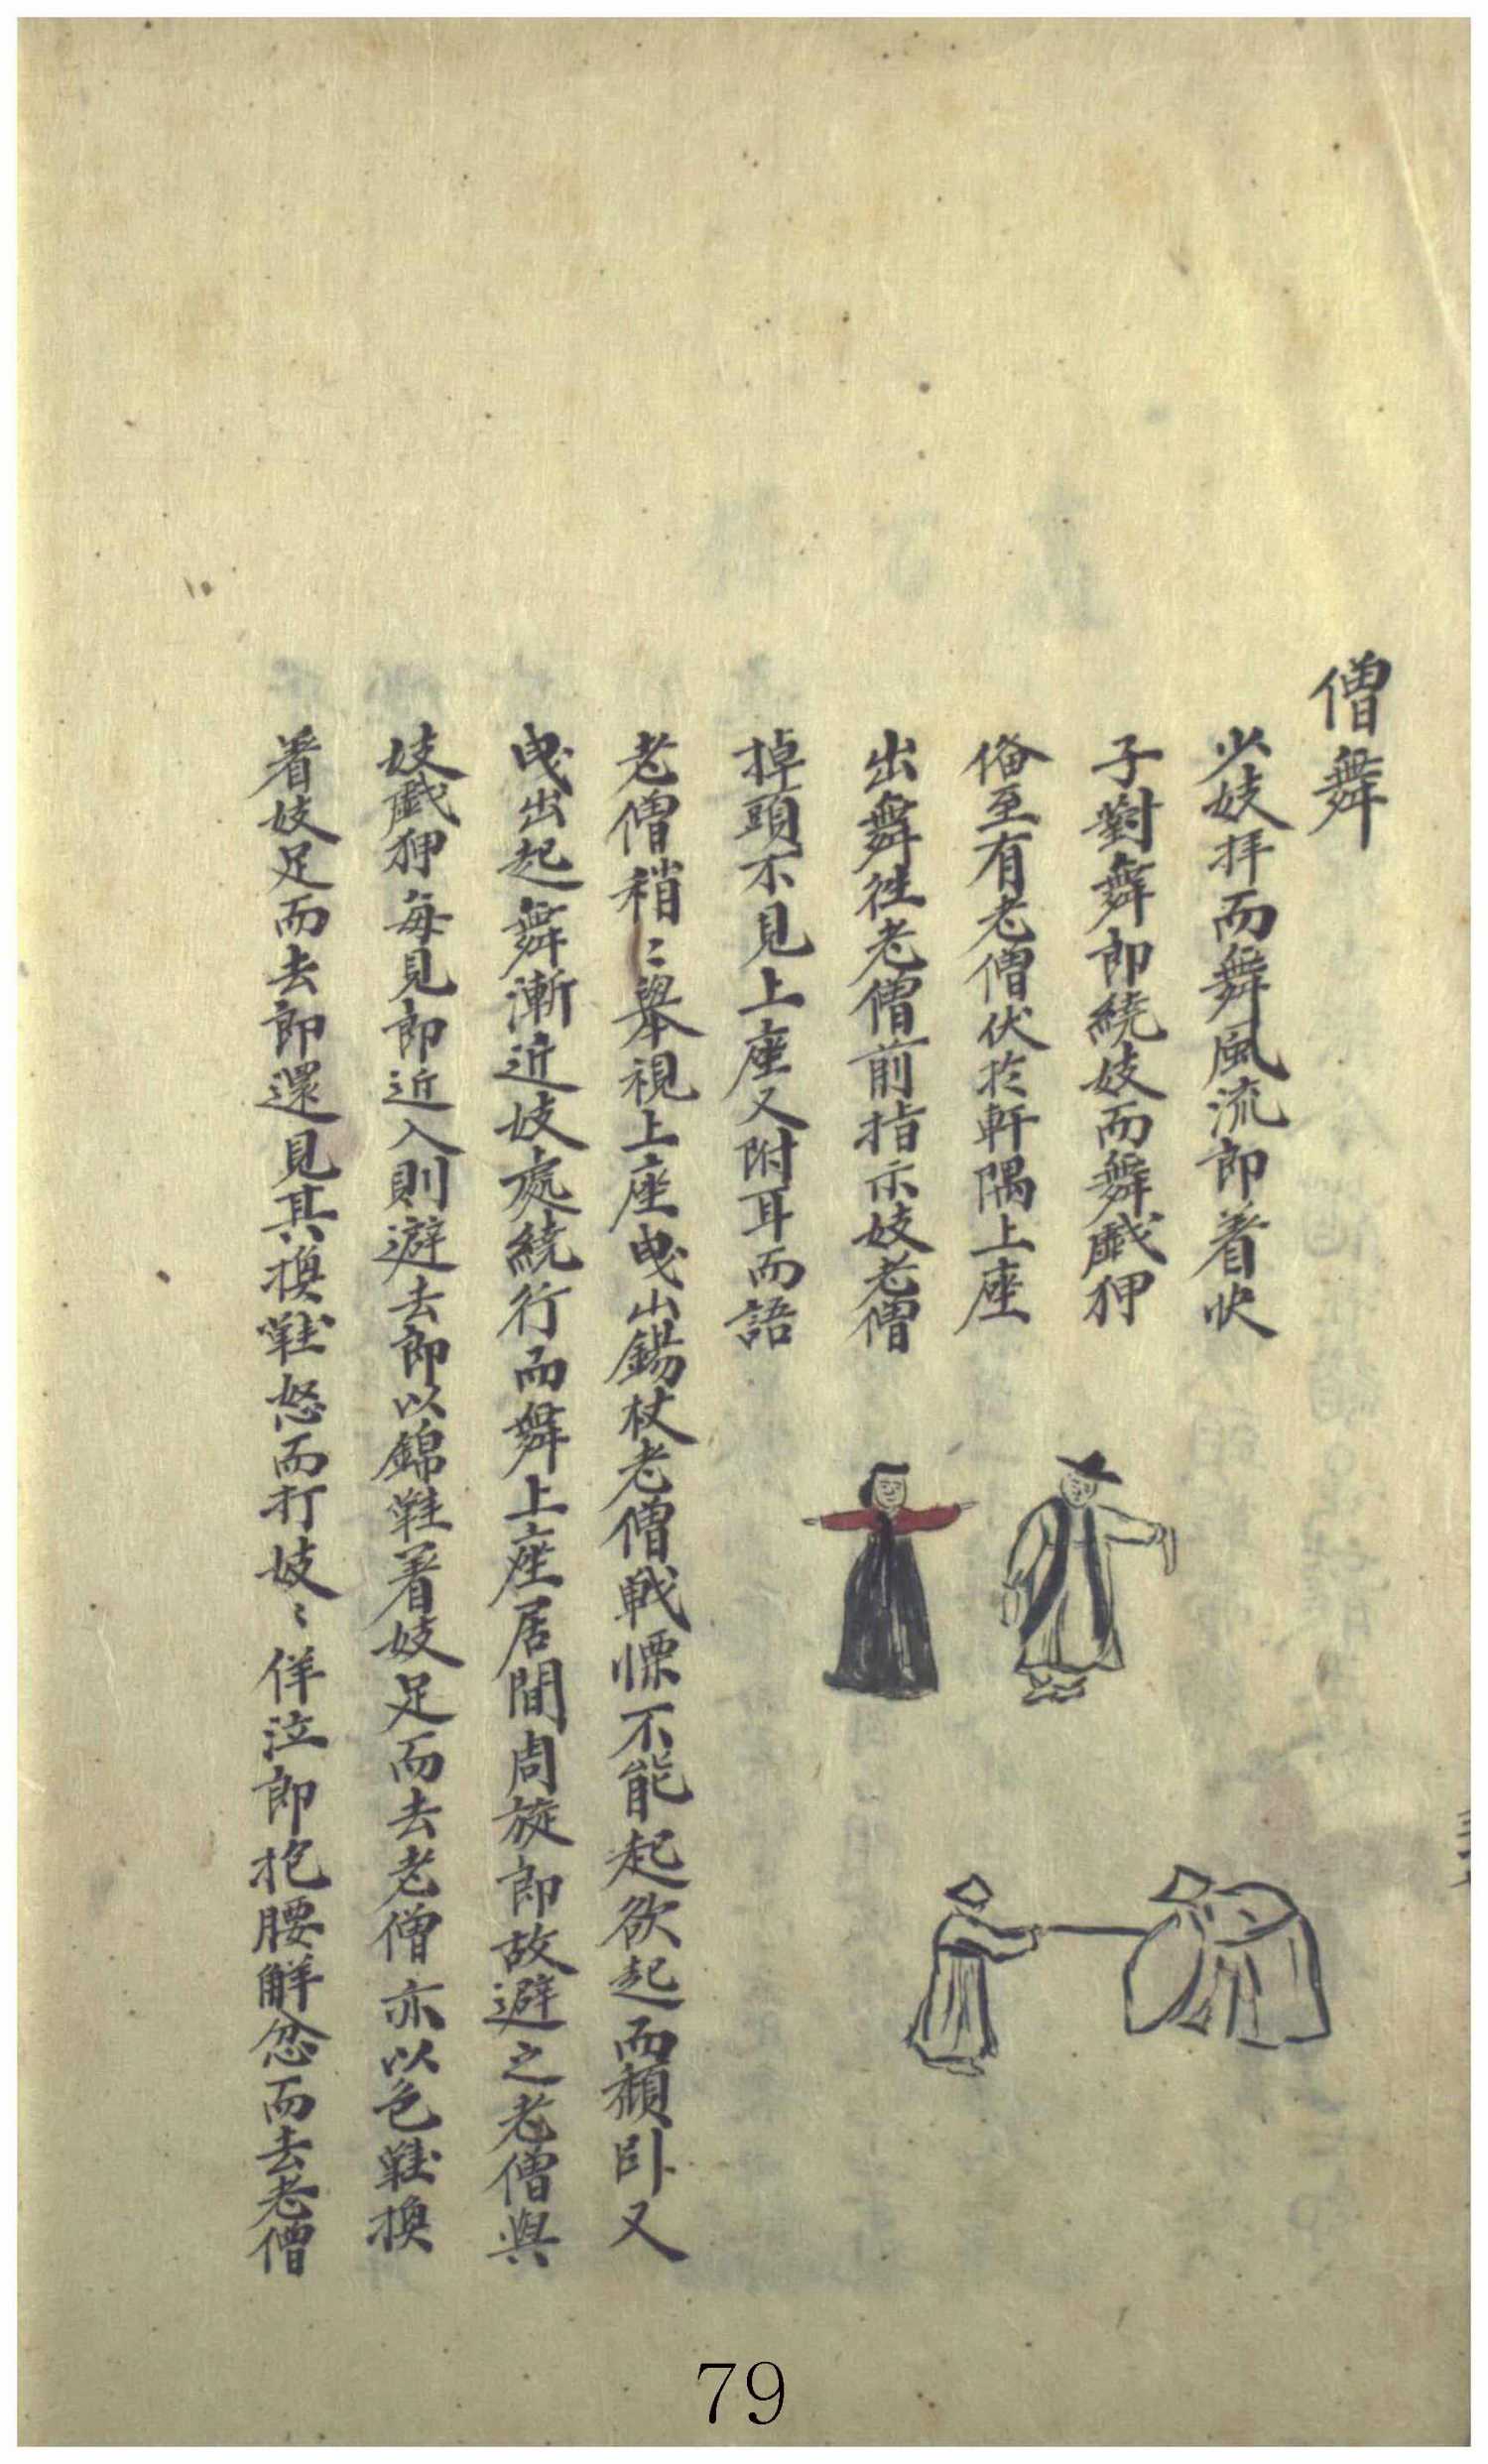 僧舞
少妓拜而舞風流郎着快
子對舞郎繞妓而舞戱狎
俻至有老僧伏於軒隅上座
出舞徃老僧前指示妓老僧
掉頭不見上座又附耳而語
老僧稍〻擧視上座曳出錫杖老僧戦慄不能起欲起而頹卧又
曳出起舞漸近妓處繞行而舞上座居間周旋郎故避之老僧與
妓戱狎每見郎近入則避去郎以錦鞋着妓足而去老僧亦以色鞋換
着妓足而去郎還見其換鞋怒而打妓〻佯泣郎抱腰解忿而去老僧
79